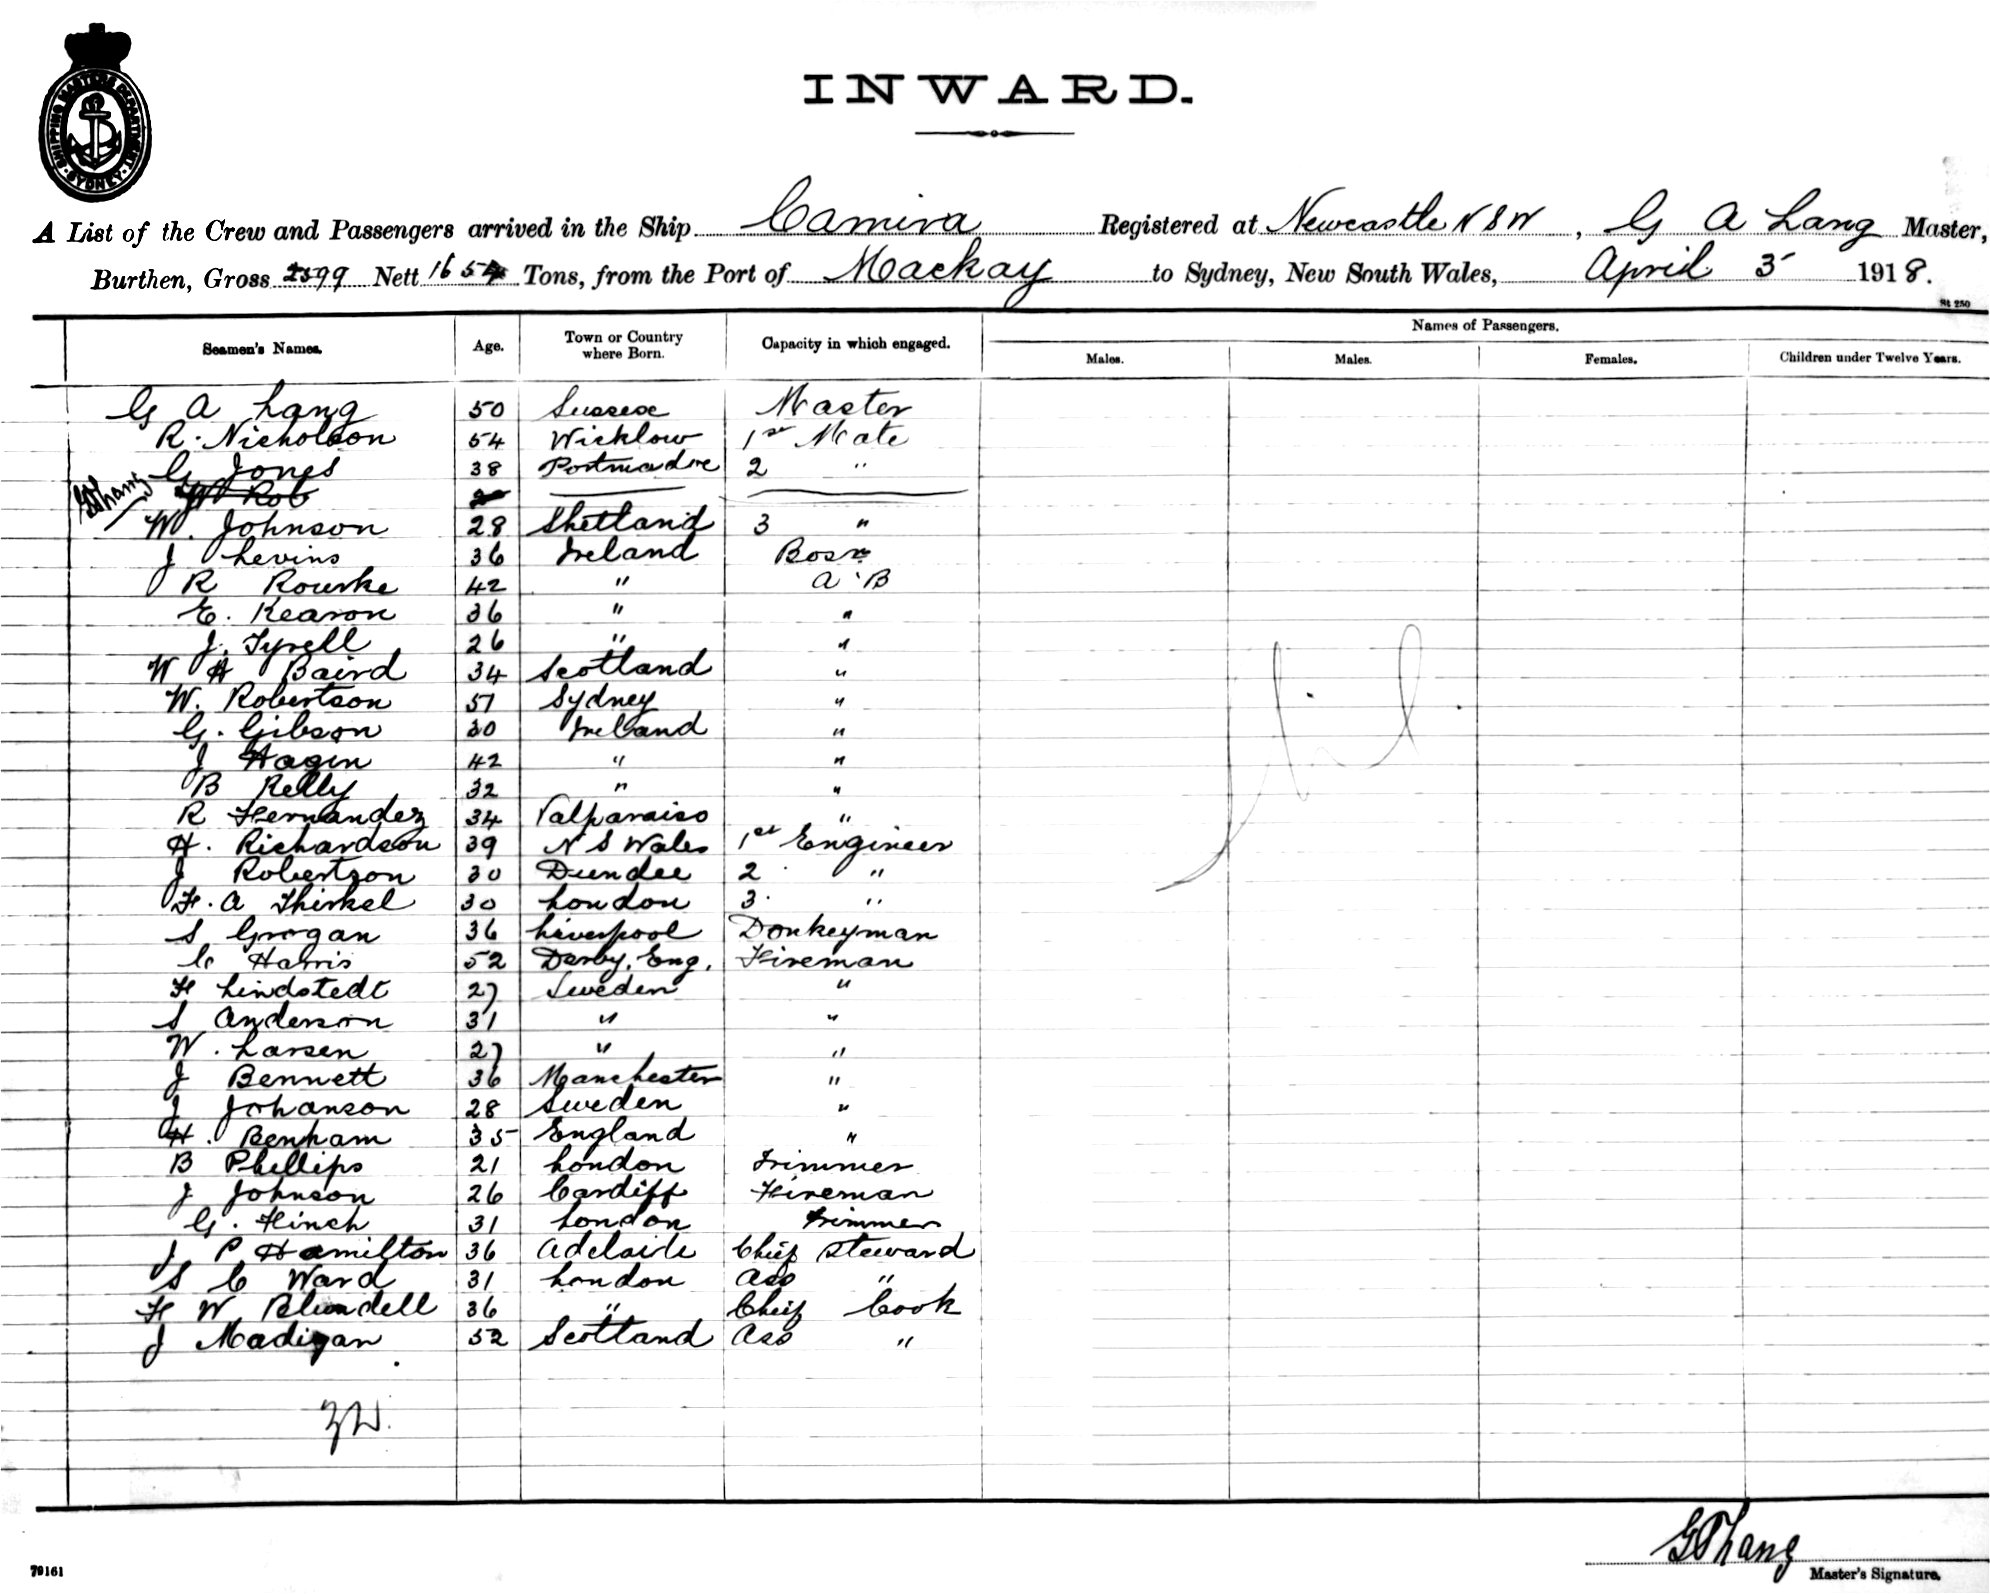 SHIPPING MASTERS DEPARTMENT
SYDNEY
INWARD.
A List of the Crew and Passengers arrived in the Ship Camira Registered at Newcastle N S W, G A Lang Master,
Burthen, Gross 2599 Nett 1654 Tons, from the Port of Mackay to Sydney, New South Wales, April 5 1918.
St 250
Seamen's Names. Age. Town or Country where Born. Capacity in which engaged. Names of Passengers.
Males. Males. Females. Children under Twelve Years.
G A Lang 50 Sussex Master
R. Nicholson 54 Wicklow 1st Mate
G Jones 38 Portmadoc 2 "
GALang W Rob
W. Johnson 28 Shetland 3 "
J Levins 36 Ireland Bosn
R Rourke 42 " A B
E. Kearon 36 " "
J. Tyrell 26 " "
W H Baird 34 Scotland "
W. Robertson 51 Sydney "
G. Gibson 30 Ireland "
J Hagin 42 " "
B Kelly 32 " "
R Hernandez 34 Valparaiso "
H. Richardson 39 N S Wales 1st Engineer
J Robertson 30 Dundee 2 "
F. A Thirkel 30 London 3 "
S Grogan 36 Liverpool Donkeyman
C Harris 52 Derby, Eng, Fireman
F Lindstedt 27 Sweden "
S Anderson 31 " "
W. Larsen 27 " "
J Bennett 36 Manchester "
J Johanson 28 Sweden "
H. Benham 35 England "
B Phillips 21 London Trimmer
J Johnson 26 Cardiff Fireman
G. Finch 31 London Trimmer
J P Hamilton 36 Adelaide Chief Steward
S C Ward 31 London Ass "
F W Blundell 36 " Chief Cook
J Madigan 52 Scotland Ass "
Nil.
GALang
Master's Signature.
79161